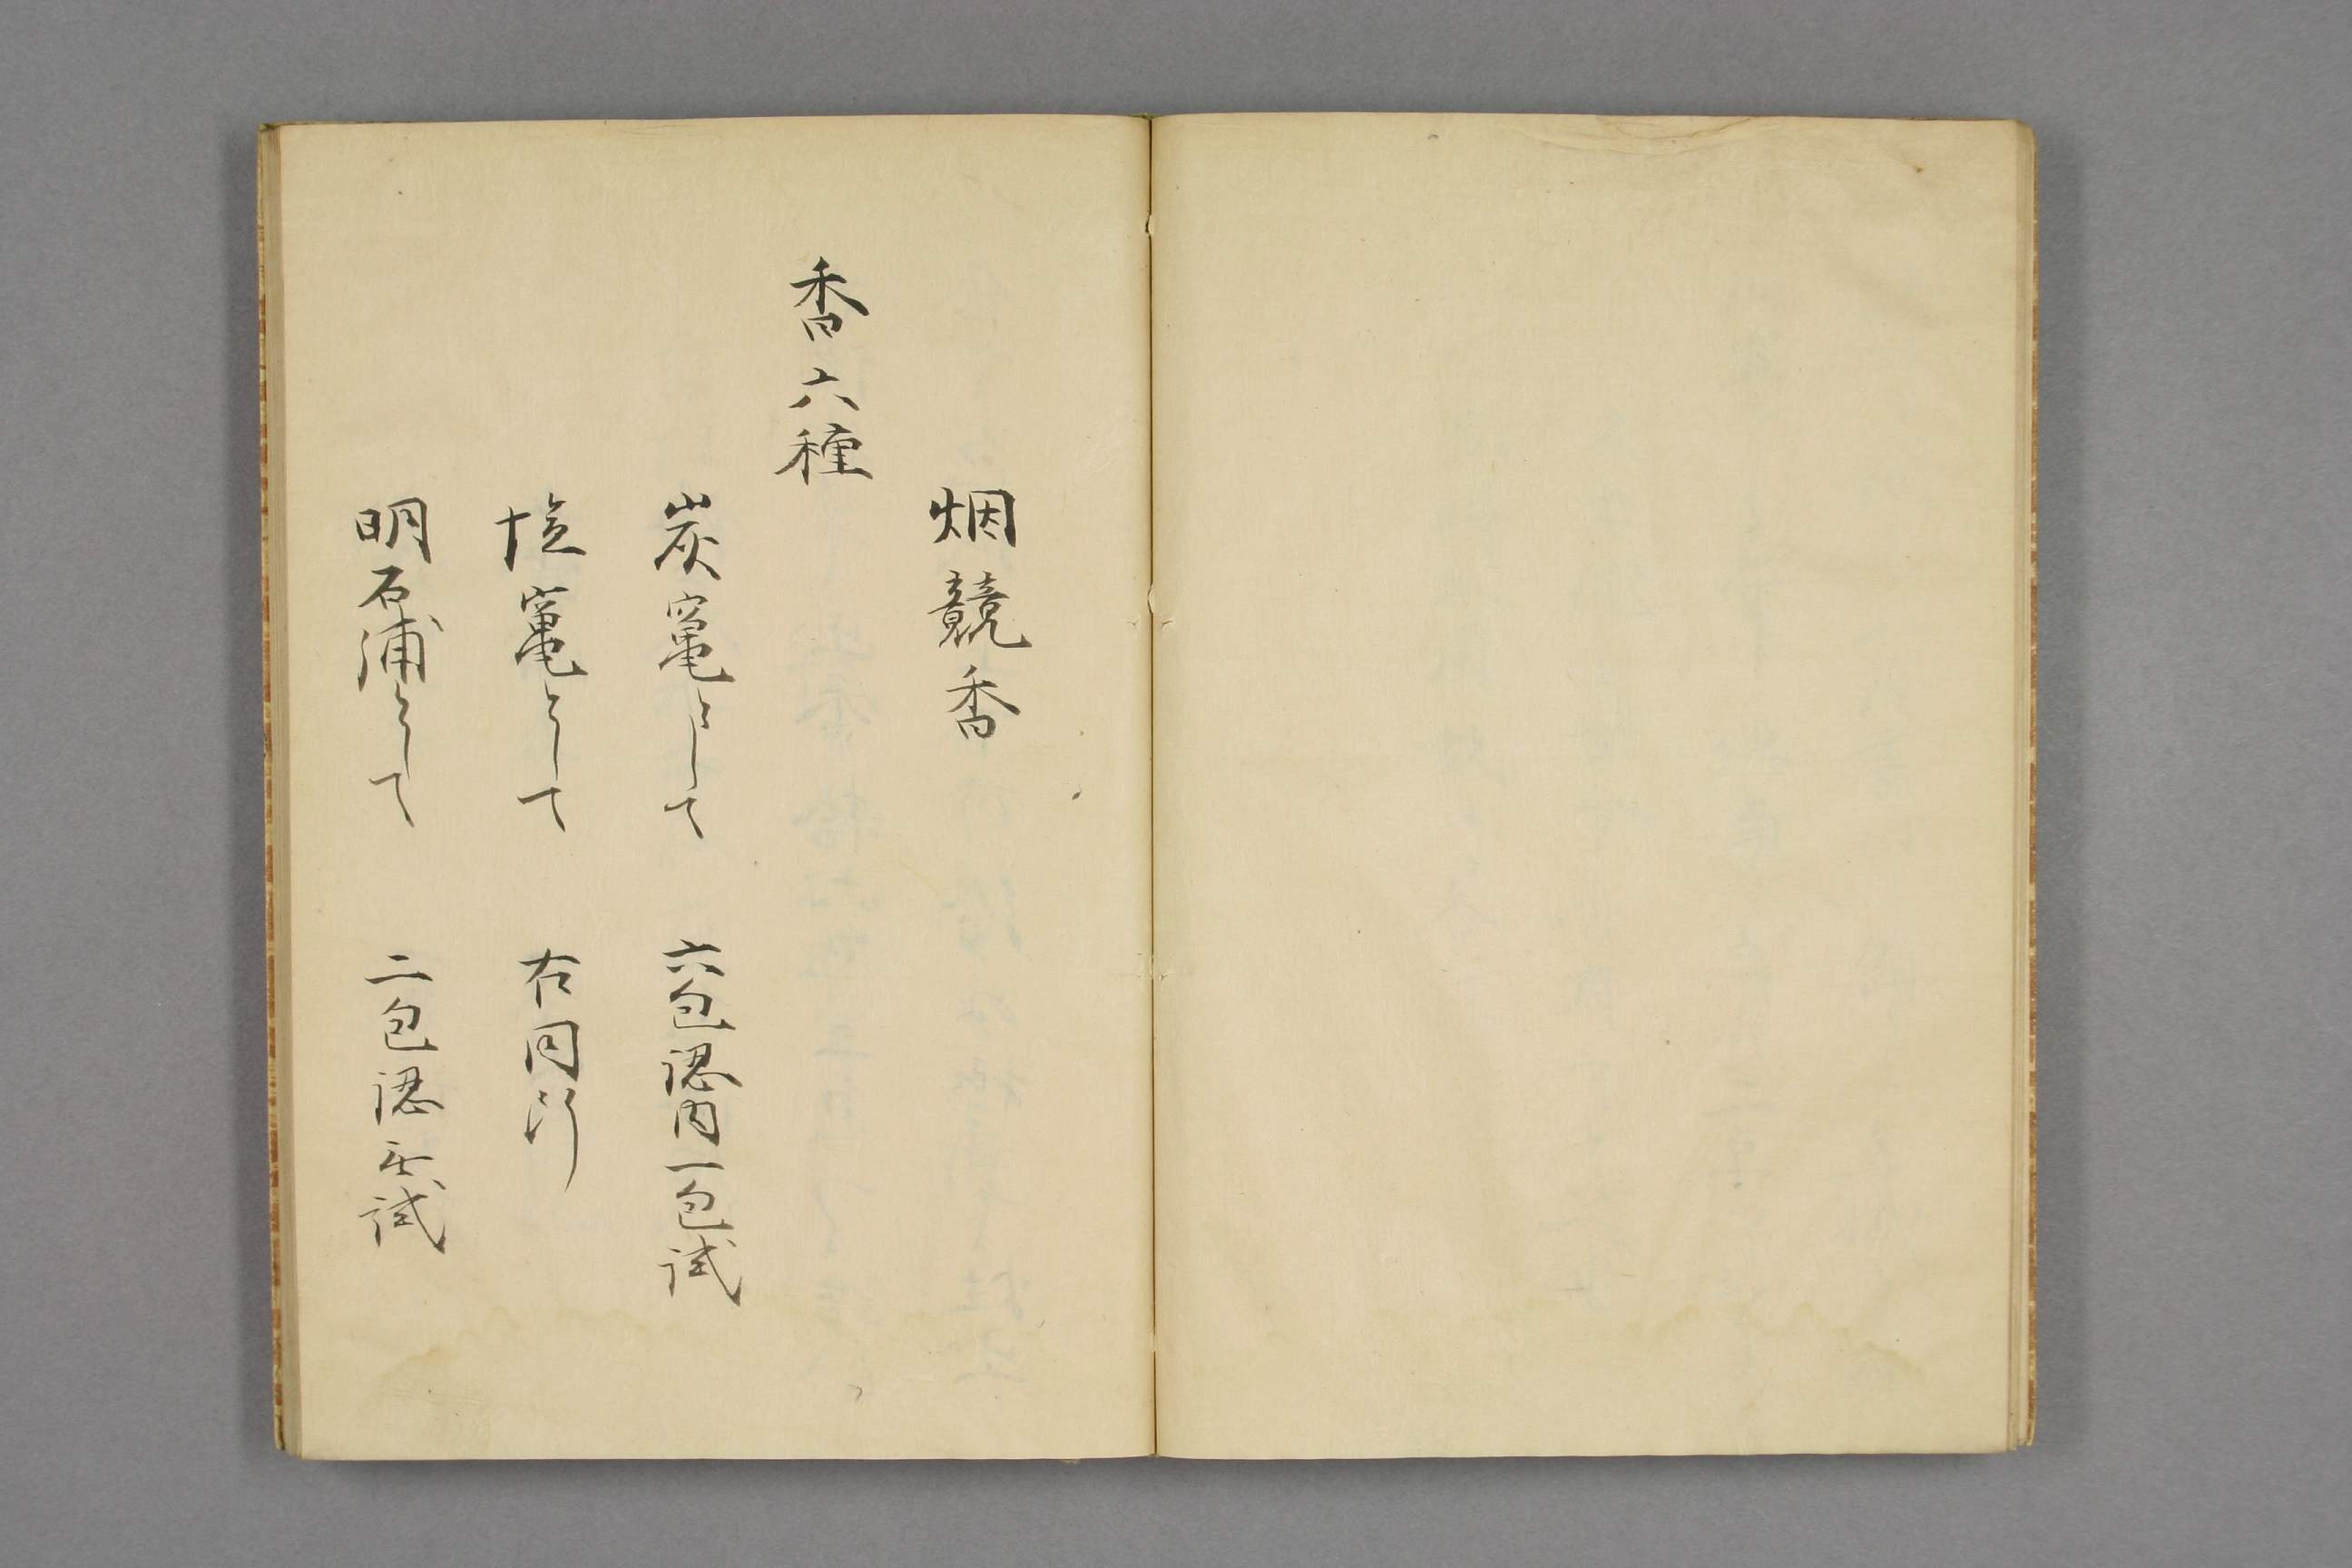 烟競香
香六種
炭竃として 六包認内一包試
塩竃として 右同断
明石浦として 二包認無試